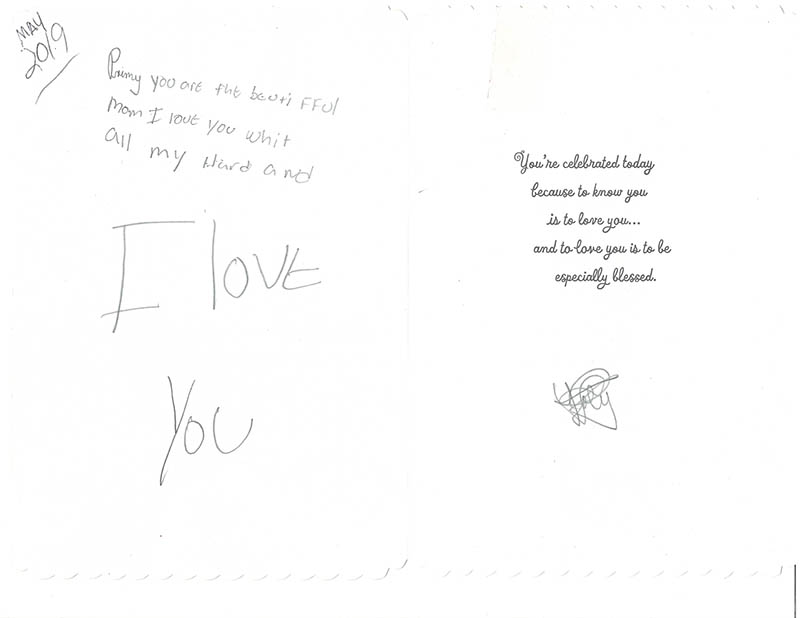 MAY
2019
Primy you are the beuti FFul
Mom I love you whit
all my Hard and
I love
you
You're celebrated today
because to know you
is to love you...
and to love you is to be
especially blessed.